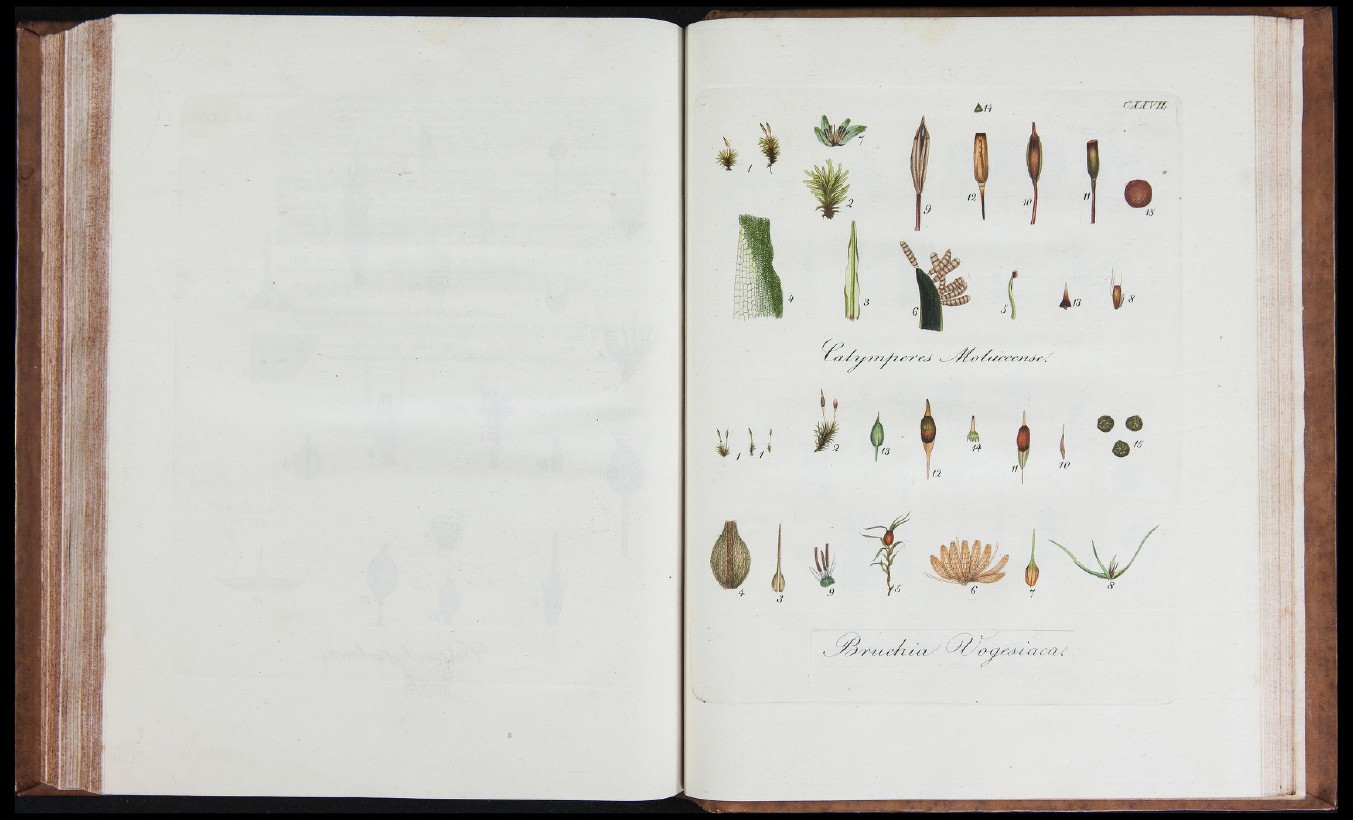 14 CXXVII.
1 7 2 9 12 10 11 15
4 3 6 5 13 8
Calymperes Moluccense.
1 1 2 13 12 14 11 10 15
4 3 9 5 6 7 8
Bruchia Vogesiaca.